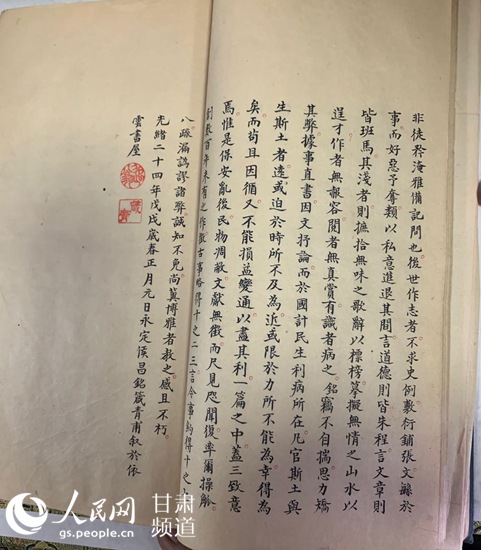 非徒矜淹雅備記問也後世作志者不求史例敷衍舖張文緐於
事而好惡予奪類以私意進退其間言道德則皆朱程言文章則
皆班馬其淺者則摭拾無味之歌辭以標榜摹擬無情之山水以
逞才作者無赧容閱者無真賞有識者病之銘竊不自揣思力矯
其弊據事直書因文抒論而於國計民生利病所在凡官斯土與
生斯土者遠或迫於時所不及為近或限於力所不能為幸得為
矣而苟且因循又不能損益變通以盡其利一篇之中蓋三致意
焉惟是保安亂後民物凋敝文獻無徵而尺見咫聞復率爾操觚
創數百年未有之作故古事略得十之二三言今事約得十之
八疏漏譌謬諸弊誠知不免尚冀博雅者教之感且不朽
光緒二十四年戊戌歲春正月元日永定侯昌銘箴青甫叙於依
雲書屋
人民网 甘肃频道
gs.people.com.cn